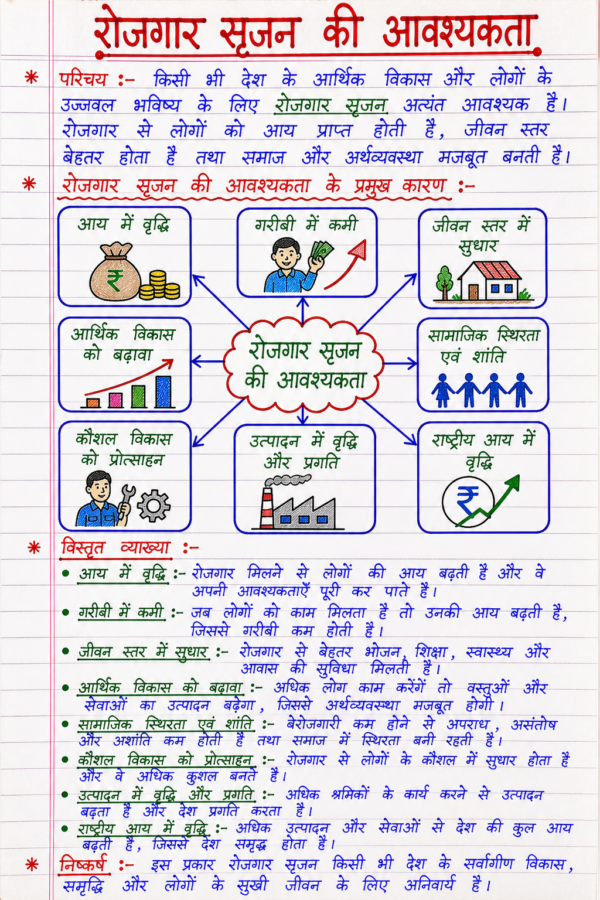 रोजगार सृजन की आवश्यकता
* परिचय :- किसी भी देश के आर्थिक विकास और लोगों के
उज्जवल भविष्य के लिए रोजगार सृजन अत्यंत आवश्यक है।
रोजगार से लोगों को आय प्राप्त होती है, जीवन स्तर
बेहतर होता है तथा समाज और अर्थव्यवस्था मजबूत बनती है।
* रोजगार सृजन की आवश्यकता के प्रमुख कारण :-
आय में वृद्धि
₹
गरीबी में कमी
जीवन स्तर में
सुधार
आर्थिक विकास
को बढ़ावा
रोजगार सृजन
की आवश्यकता
सामाजिक स्थिरता
एवं शांति
कौशल विकास
को प्रोत्साहन
उत्पादन में वृद्धि
और प्रगति
राष्ट्रीय आय में
वृद्धि
₹
* विस्तृत व्याख्या :-
• आय में वृद्धि :- रोजगार मिलने से लोगों की आय बढ़ती है और वे
अपनी आवश्यकताएँ पूरी कर पाते है।
• गरीबी में कमी :- जब लोगों को काम मिलता है तो उनकी आय बढ़ती है,
जिससे गरीबी कम होती है।
• जीवन स्तर में सुधार :- रोजगार से बेहतर भोजन, शिक्षा, स्वास्थ्य और
आवास की सुविधा मिलती है।
• आर्थिक विकास को बढ़ावा :- अधिक लोग काम करेंगें तो वस्तुओं और
सेवाओं का उत्पादन बढ़ेगा, जिससे अर्थव्यवस्था मजबूत होगी।
• सामाजिक स्थिरता एवं शांति :- बेरोजगारी कम होने से अपराध, असंतोष
और अशांति कम होती है तथा समाज में स्थिरता बनी रहती है।
• कौशल विकास को प्रोत्साहन :- रोजगार से लोगों के कौशल में सुधार होता है
और वे अधिक कुशल बनते है।
• उत्पादन में वृद्धि और प्रगति :- अधिक श्रमिकों के कार्य करने से उत्पादन
बढ़ता है और देश प्रगति करता है।
• राष्ट्रीय आय में वृद्धि :- अधिक उत्पादन और सेवाओं से देश की कुल आय
बढ़ती है, जिससे देश समृद्ध होता है।
* निष्कर्ष :- इस प्रकार रोजगार सृजन किसी भी देश के सर्वागीण विकास,
समृद्धि और लोगों के सुखी जीवन के लिए अनिवार्य है।